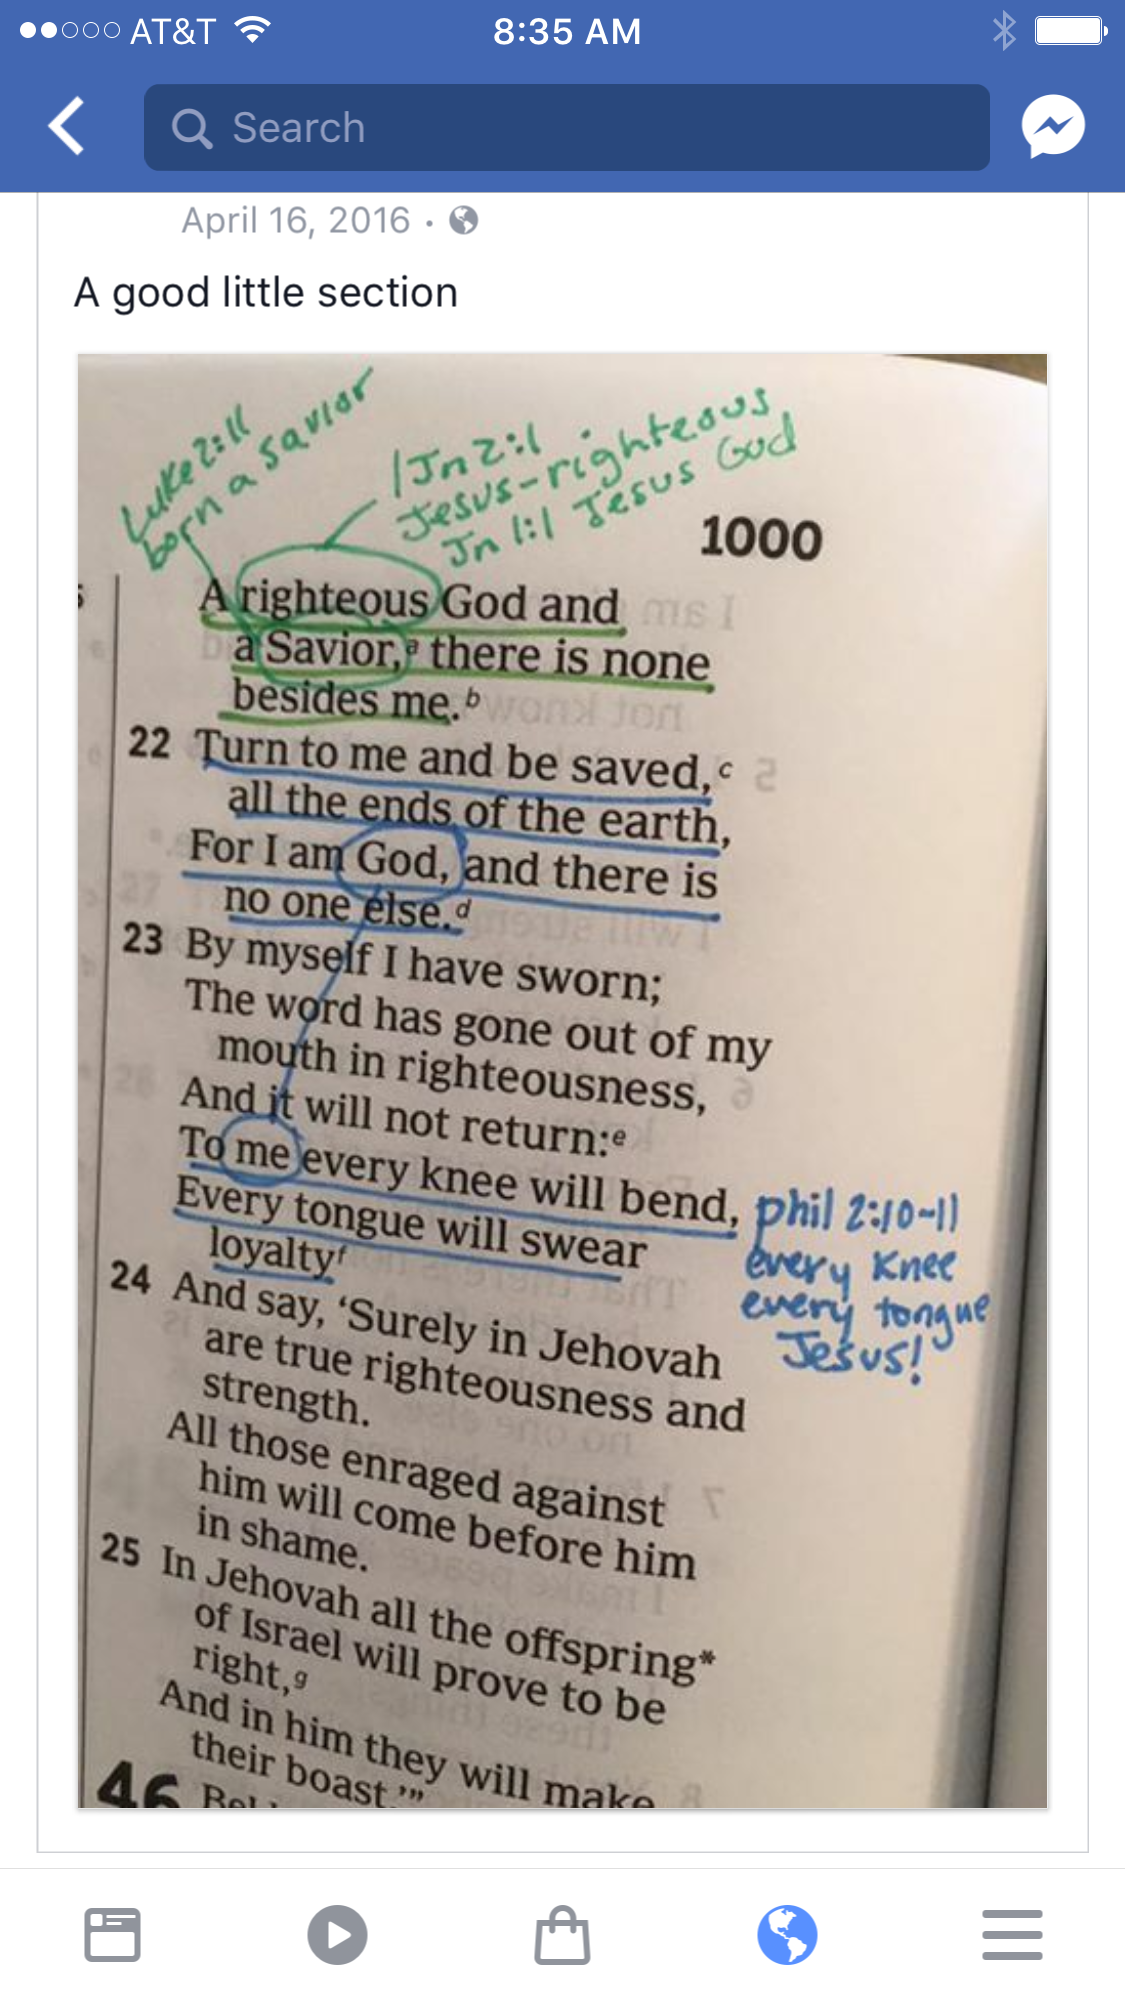 AT&T 8:35 AM
Search
April 16, 2016 ·
A good little section
Luke 2:11
born a savior
1Jn 2:1
Jesus-righteous
Jn 1:1 Jesus God
1000
A righteous God and
a Savior,ᵃ there is none
besides me.ᵇ
22 Turn to me and be saved,ᶜ
all the ends of the earth,
For I am God, and there is
no one else.ᵈ
23 By myself I have sworn;
The word has gone out of my
mouth in righteousness,
And it will not return:ᵉ
To me every knee will bend,
Every tongue will swear
loyaltyᶠ
phil 2:10-11
every knee
every tongue
Jesus!
24 And say, ‘Surely in Jehovah
are true righteousness and
strength.
All those enraged against
him will come before him
in shame.
25 In Jehovah all the offspring*
of Israel will prove to be
right,ᵍ
And in him they will make
their boast.’”
46